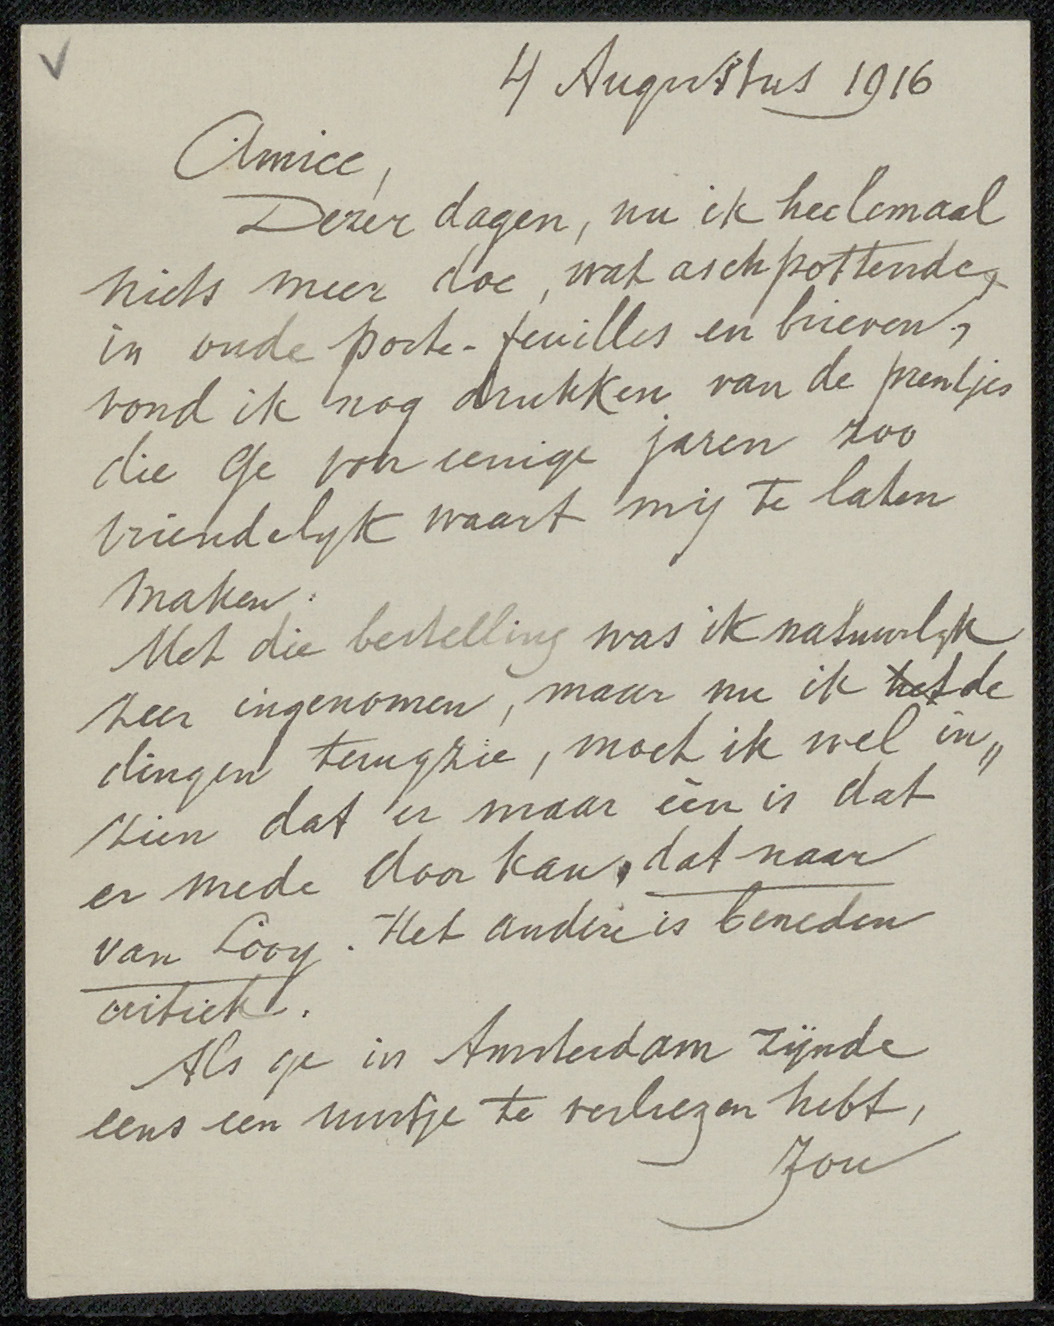 4 Augustus 1916
Amice,
Dezer dagen, nu ik heelemaal
niets meer doe, wat aschpottende,
in oude porte-feuilles en brieven,
vond ik nog drukken van de prentjes
die Ge voor eenige jaren zoo
vriendelijk waart mij te laten
maken.
Met die bestelling was ik natuurlijk
zeer ingenomen, maar nu ik het de
dingen terugzie, moet ik wel in„
zien dat er maar één is dat
er mede door kan, dat naar
van Looy. Het andere is beneden
critiek.
Als ge in Amsterdam zijnde
eens een uurtje te verliezen hebt,
Zou